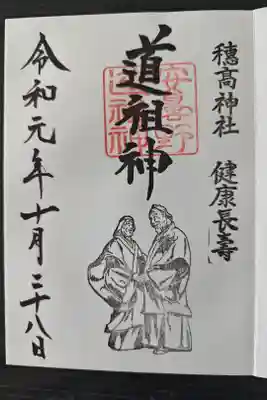 穂髙神社 健康長壽
道祖神
令和元年十月二十八日